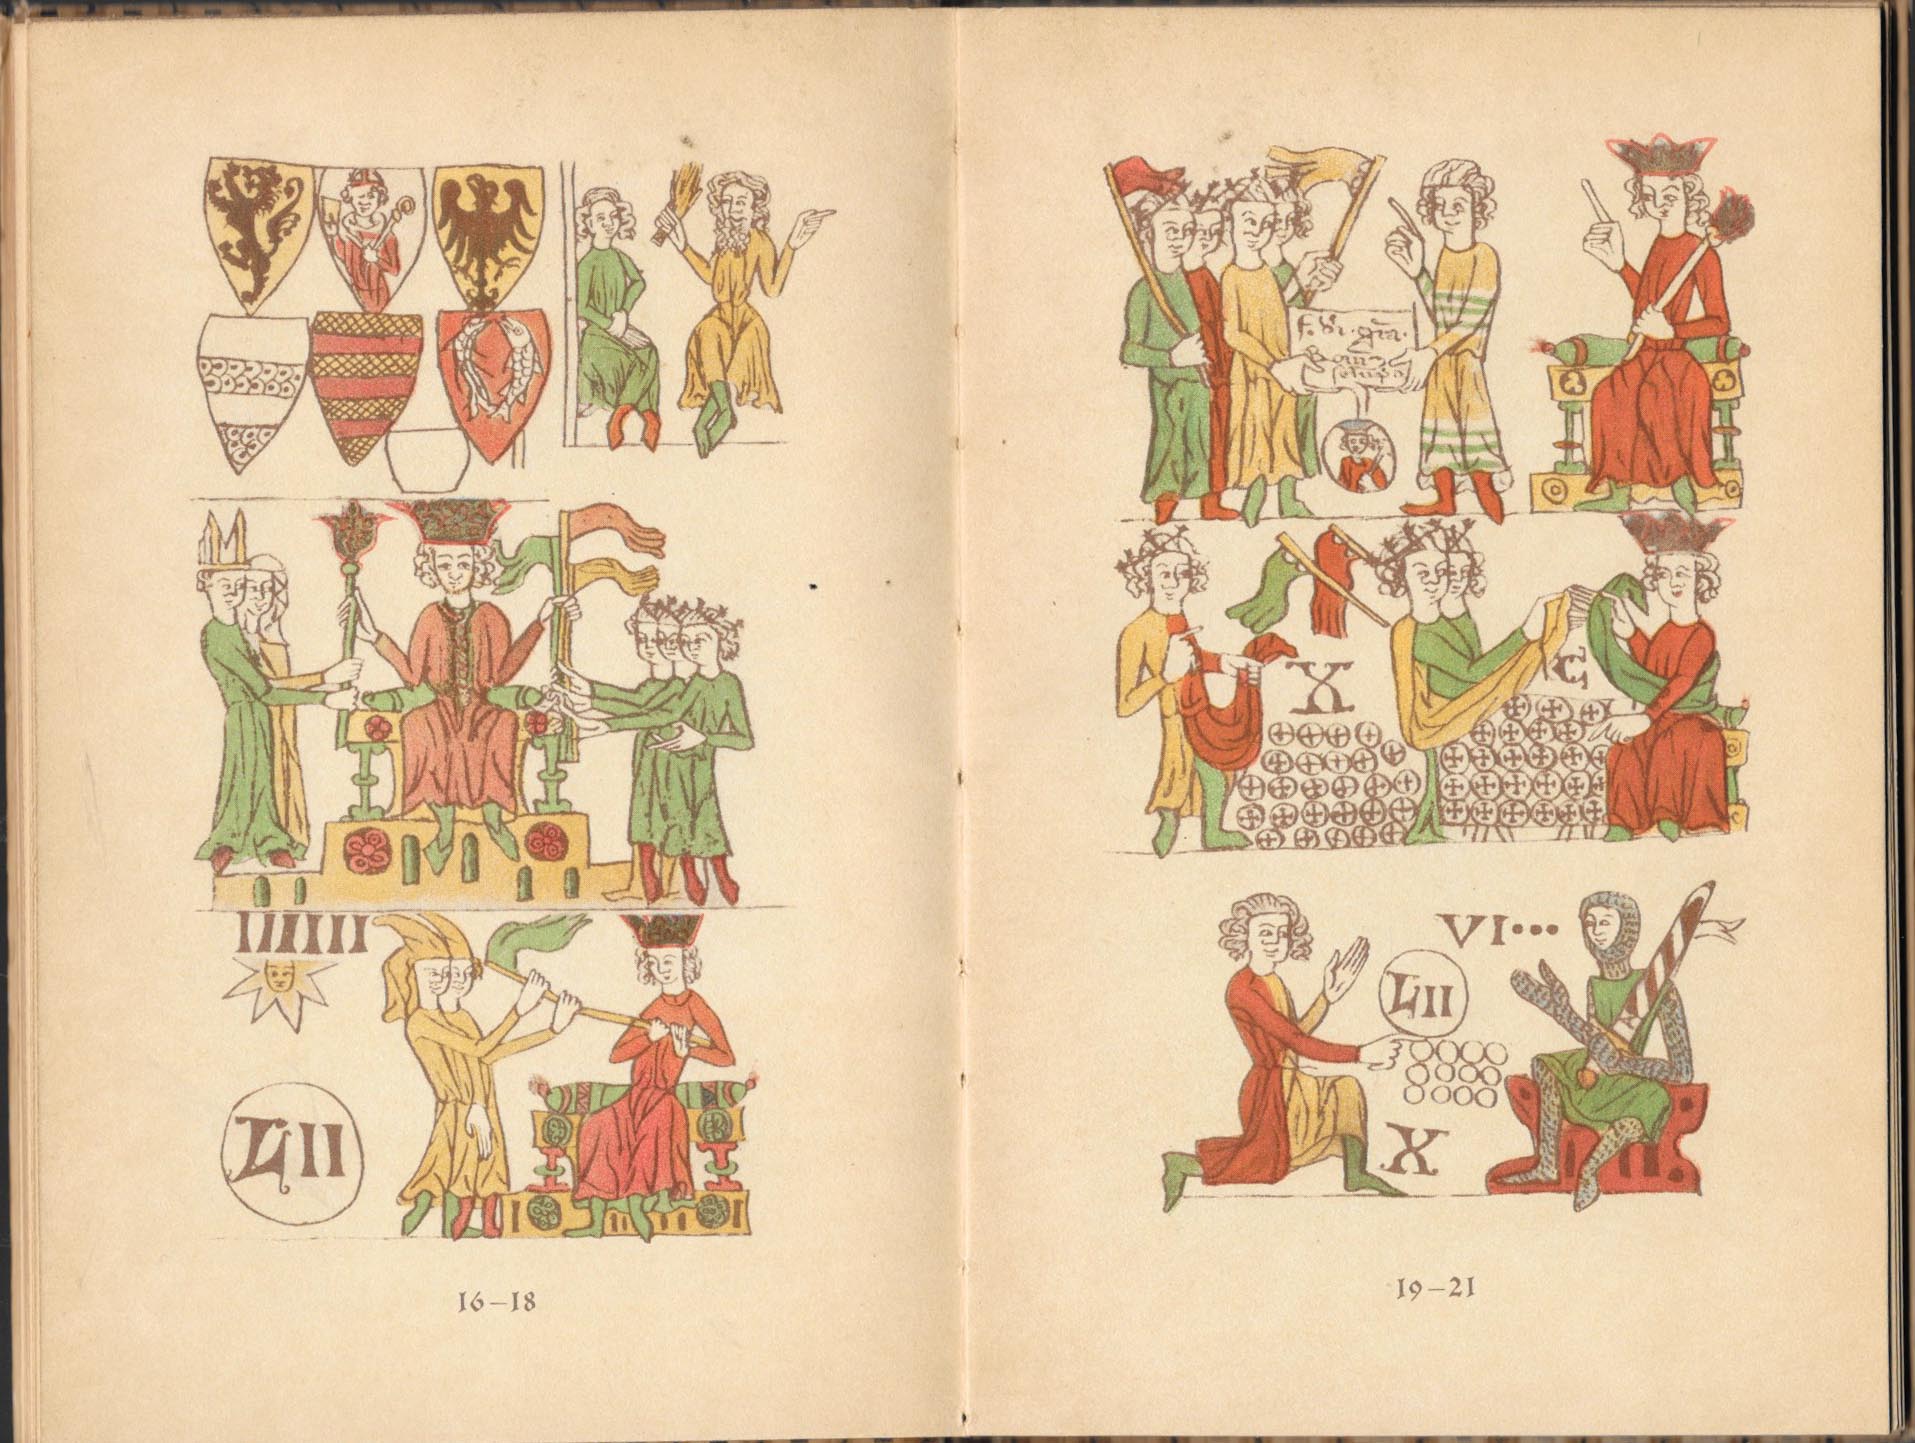 IIIIIII
LII
16–18
X
C
VI...
LII
X
19–21